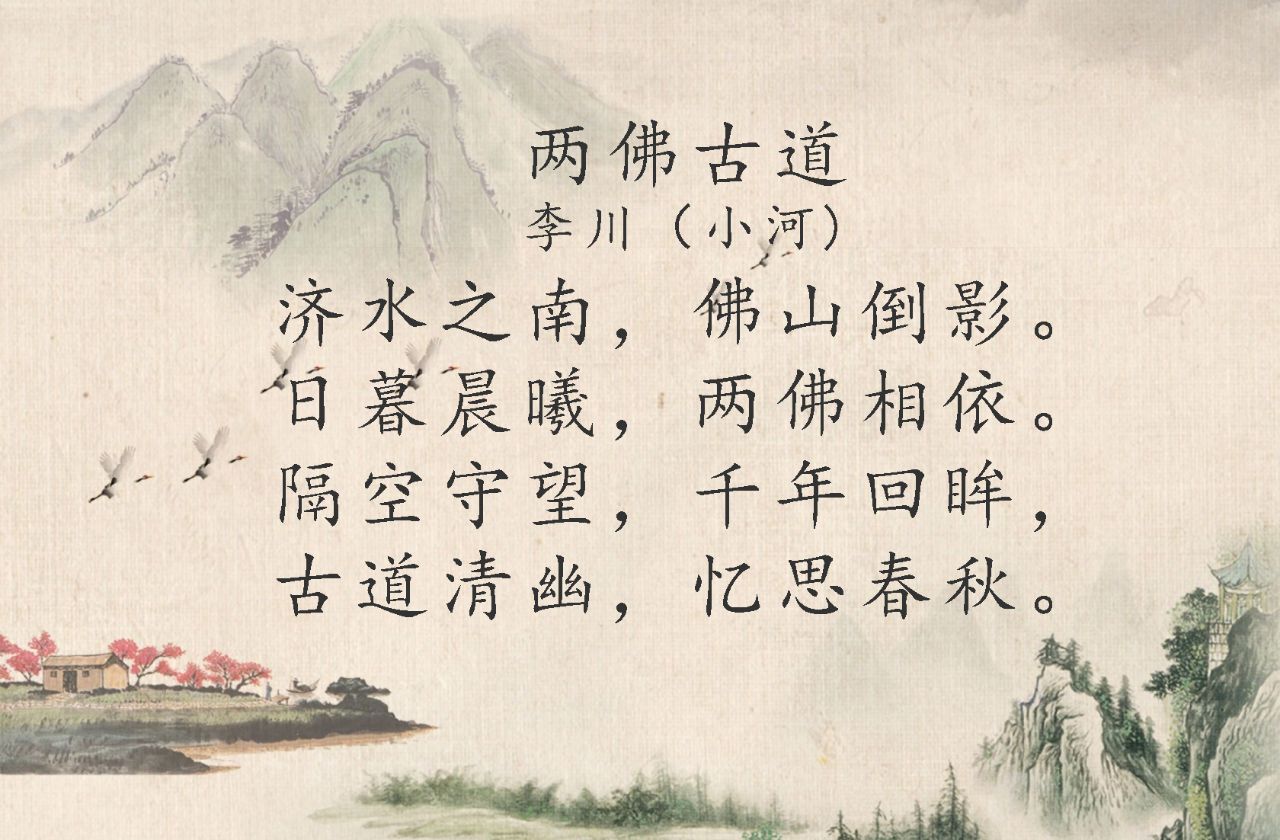 两佛古道
李川（小河）
济水之南，佛山倒影。
日暮晨曦，两佛相依。
隔空守望，千年回眸，
古道清幽，忆思春秋。